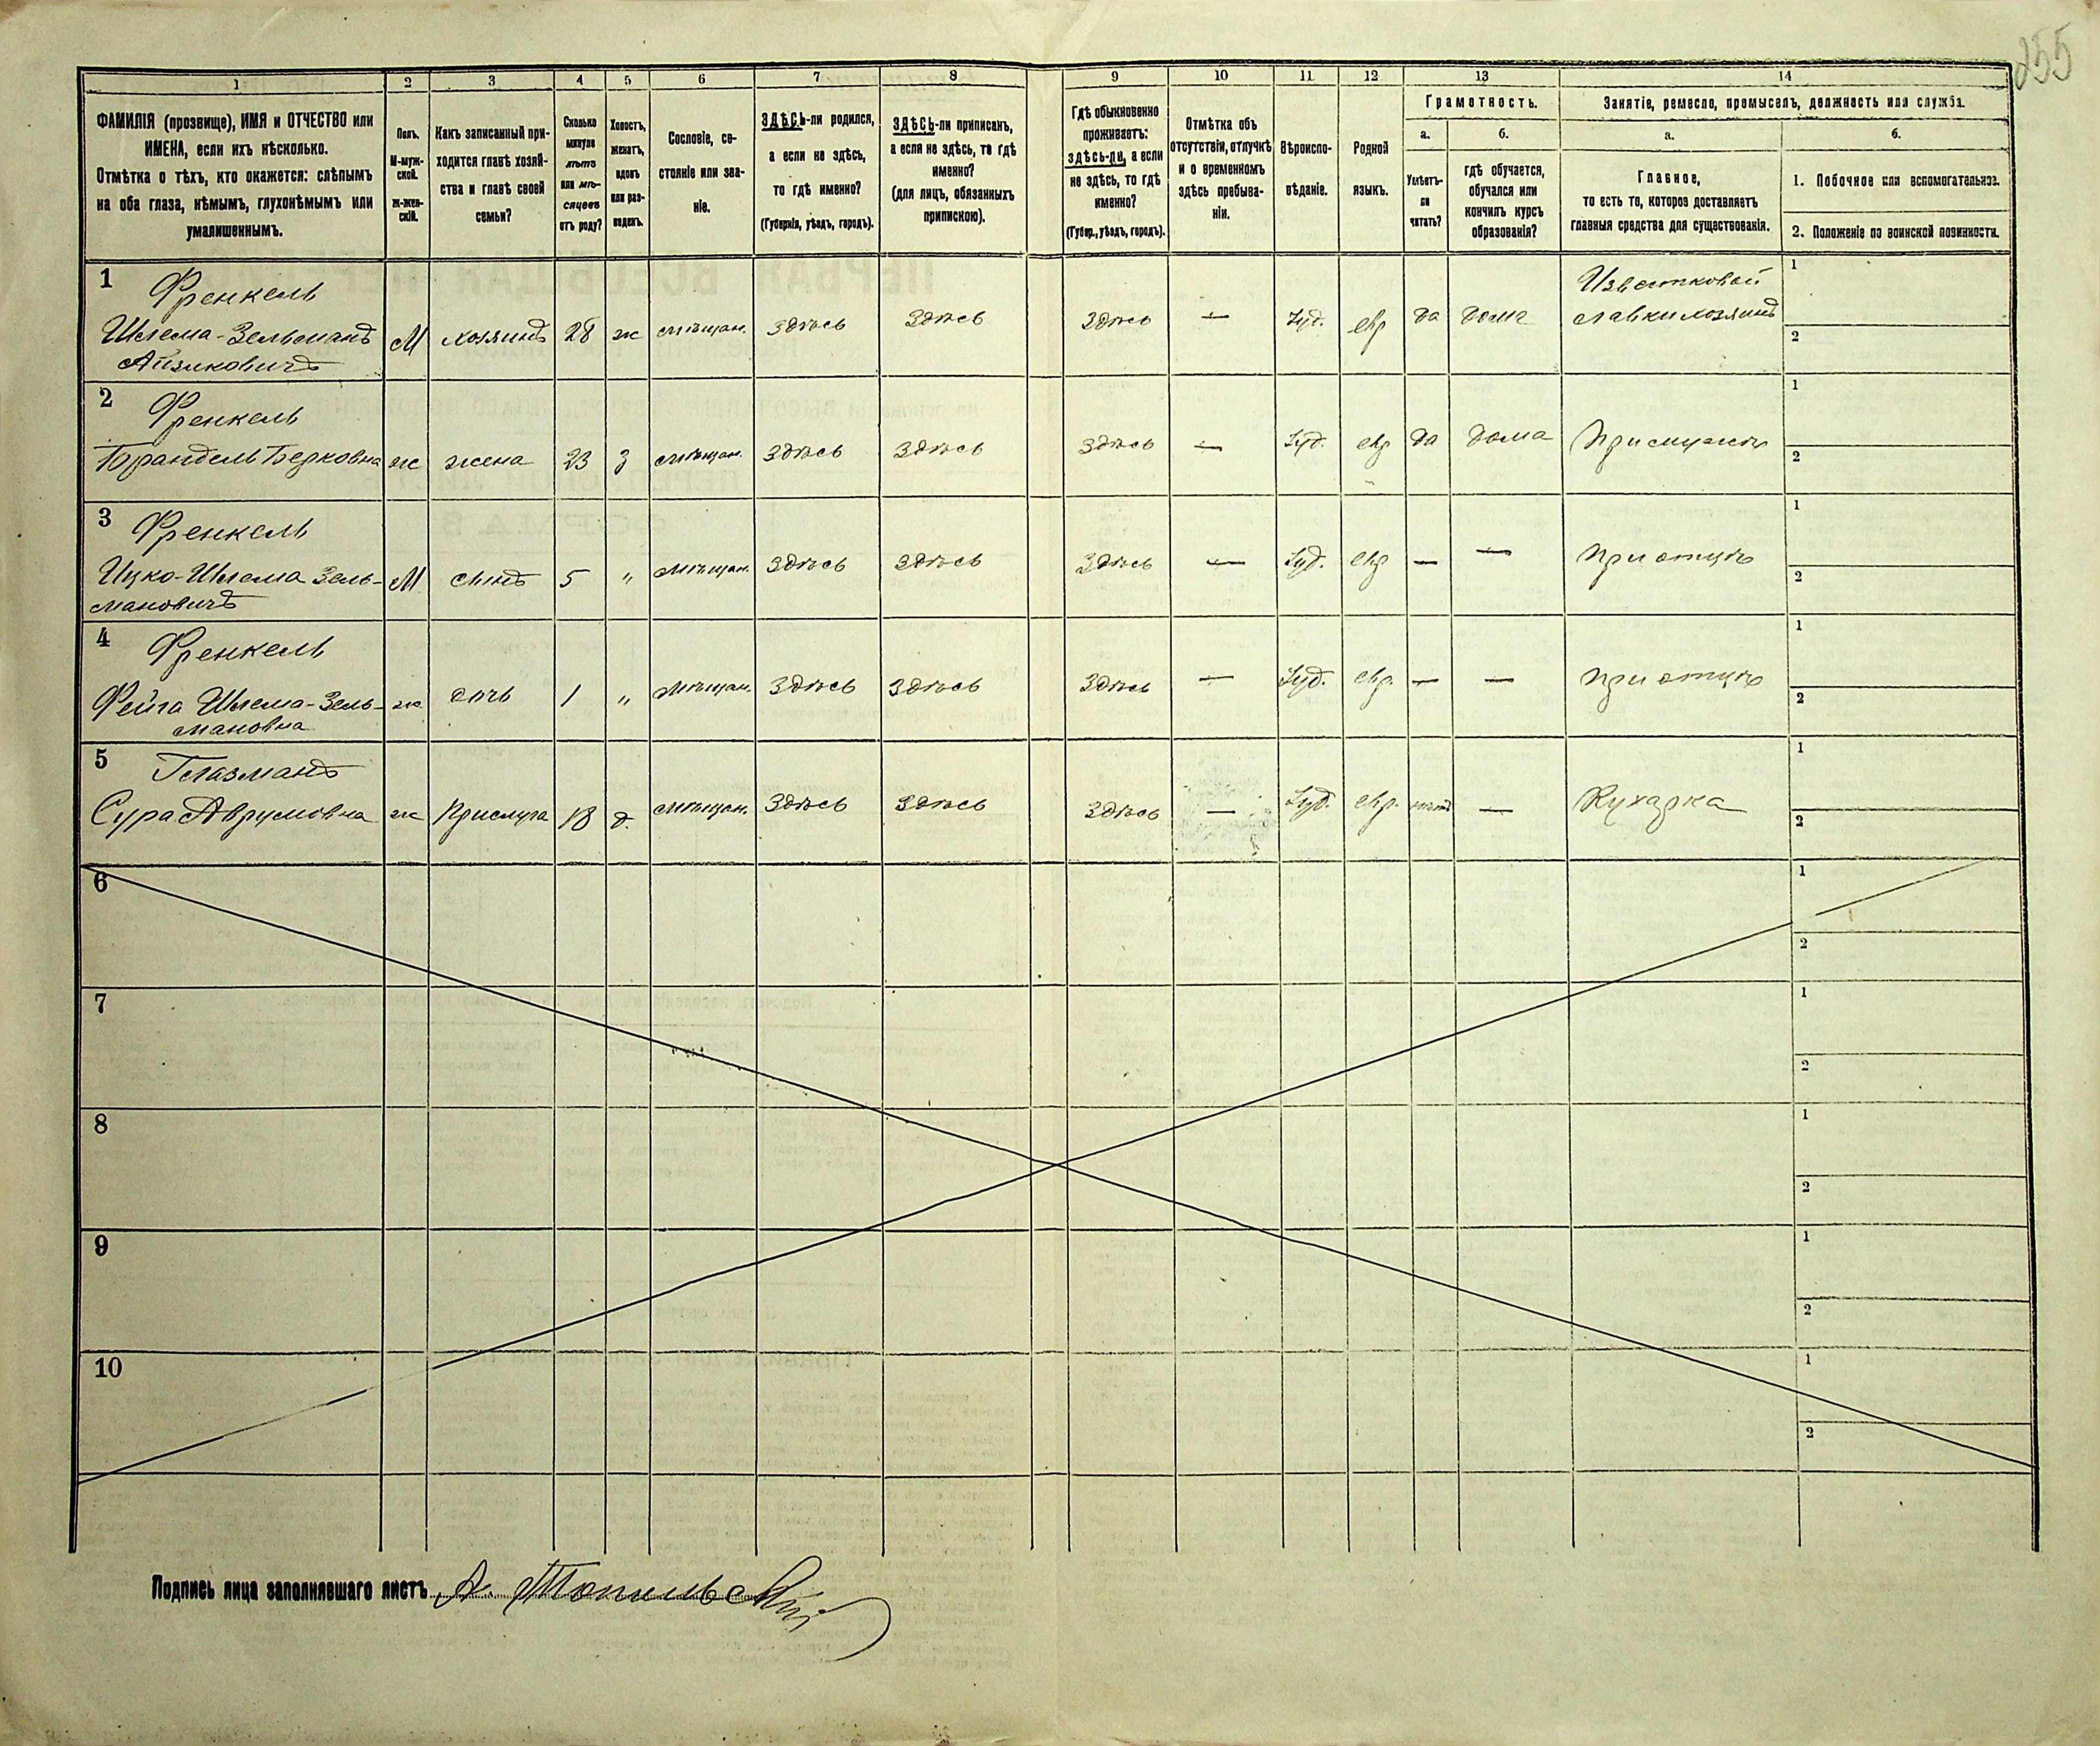 255
1 2 3 4 5 6 7 8 9 10 11 12 13 14
ФАМИЛІЯ (прозвище), ИМЯ и ОТЧЕСТВО или
ИМЕНА, если ихъ нѣсколько.
Отмѣтка о тѣхъ, кто окажется: слѣпымъ
на оба глаза, нѣмымъ, глухонѣмымъ или
умалишеннымъ.
Полъ.
М-муж-
ской.
ж-жен-
скій.
Какъ записанный при-
ходится главѣ хозяй-
ства и главѣ своей
семьи?
Сколько
минуло
лѣтъ
или мѣ-
сяцевъ
отъ роду?
Холостъ,
женатъ,
вдовъ
или раз-
веденъ.
Сословіе, со-
стояніе или зва-
ніе.
ЗДѢСЬ-ли родился,
а если не здѣсь,
то гдѣ именно?
(Губернія, уѣздъ, городъ).
ЗДѢСЬ-ли приписанъ,
а если не здѣсь, то гдѣ
именно?
(для лицъ, обязанныхъ
припискою).
Гдѣ обыкновенно
проживаетъ:
здѣсь-ли, а если
не здѣсь, то гдѣ
именно?
(Губер., уѣздъ, городъ).
Отмѣтка объ
отсутствіи, отлучкѣ
и о временномъ
здѣсь пребыва-
ніи.
Вѣроиспо-
вѣданіе.
Родной
языкъ.
Грамотность.
а.
Умѣетъ-
ли
читать?
б.
гдѣ обучается,
обучался или
кончилъ курсъ
образованія?
Занятіе, ремесло, промыселъ, должность или служба.
а.
Главное,
то есть то, которое доставляетъ
главныя средства для существованія.
б.
1. Побочное или вспомогательное.
2. Положеніе по воинской повинности.
1 Френкель
Шлема-Зельманъ
Айзиковичъ
М хозяинъ 28 ж мѣщан. Здѣсь Здѣсь Здѣсь — Іуд. евр да дома
Известковой
лавки хозяинъ
1
2
2 Френкель
Брандель Берковна ж жена 23 з мѣщан. Здѣсь Здѣсь Здѣсь — Іуд. евр да дома При мужѣ
1
2
3 Френкель
Ицко-Шлема Зель-
мановичъ
М сынъ 5 " мѣщан. Здѣсь Здѣсь Здѣсь — Іуд. евр — — при отцѣ
1
2
4 Френкель
Фейга Шлема-Зель-
мановна
ж дочь 1 " мѣщан. Здѣсь Здѣсь Здѣсь — Іуд. евр. — — при отцѣ
1
2
5 Глазманъ
Сура Аврумовна ж Прислуга 18 д. мѣщан. Здѣсь Здѣсь Здѣсь — Іуд. евр. нѣтъ — Кухарка
1
2
6
1
2
7
1
2
8
1
2
9
1
2
10
1
2
Подпись лица заполнявшаго листъ А. Топильскій